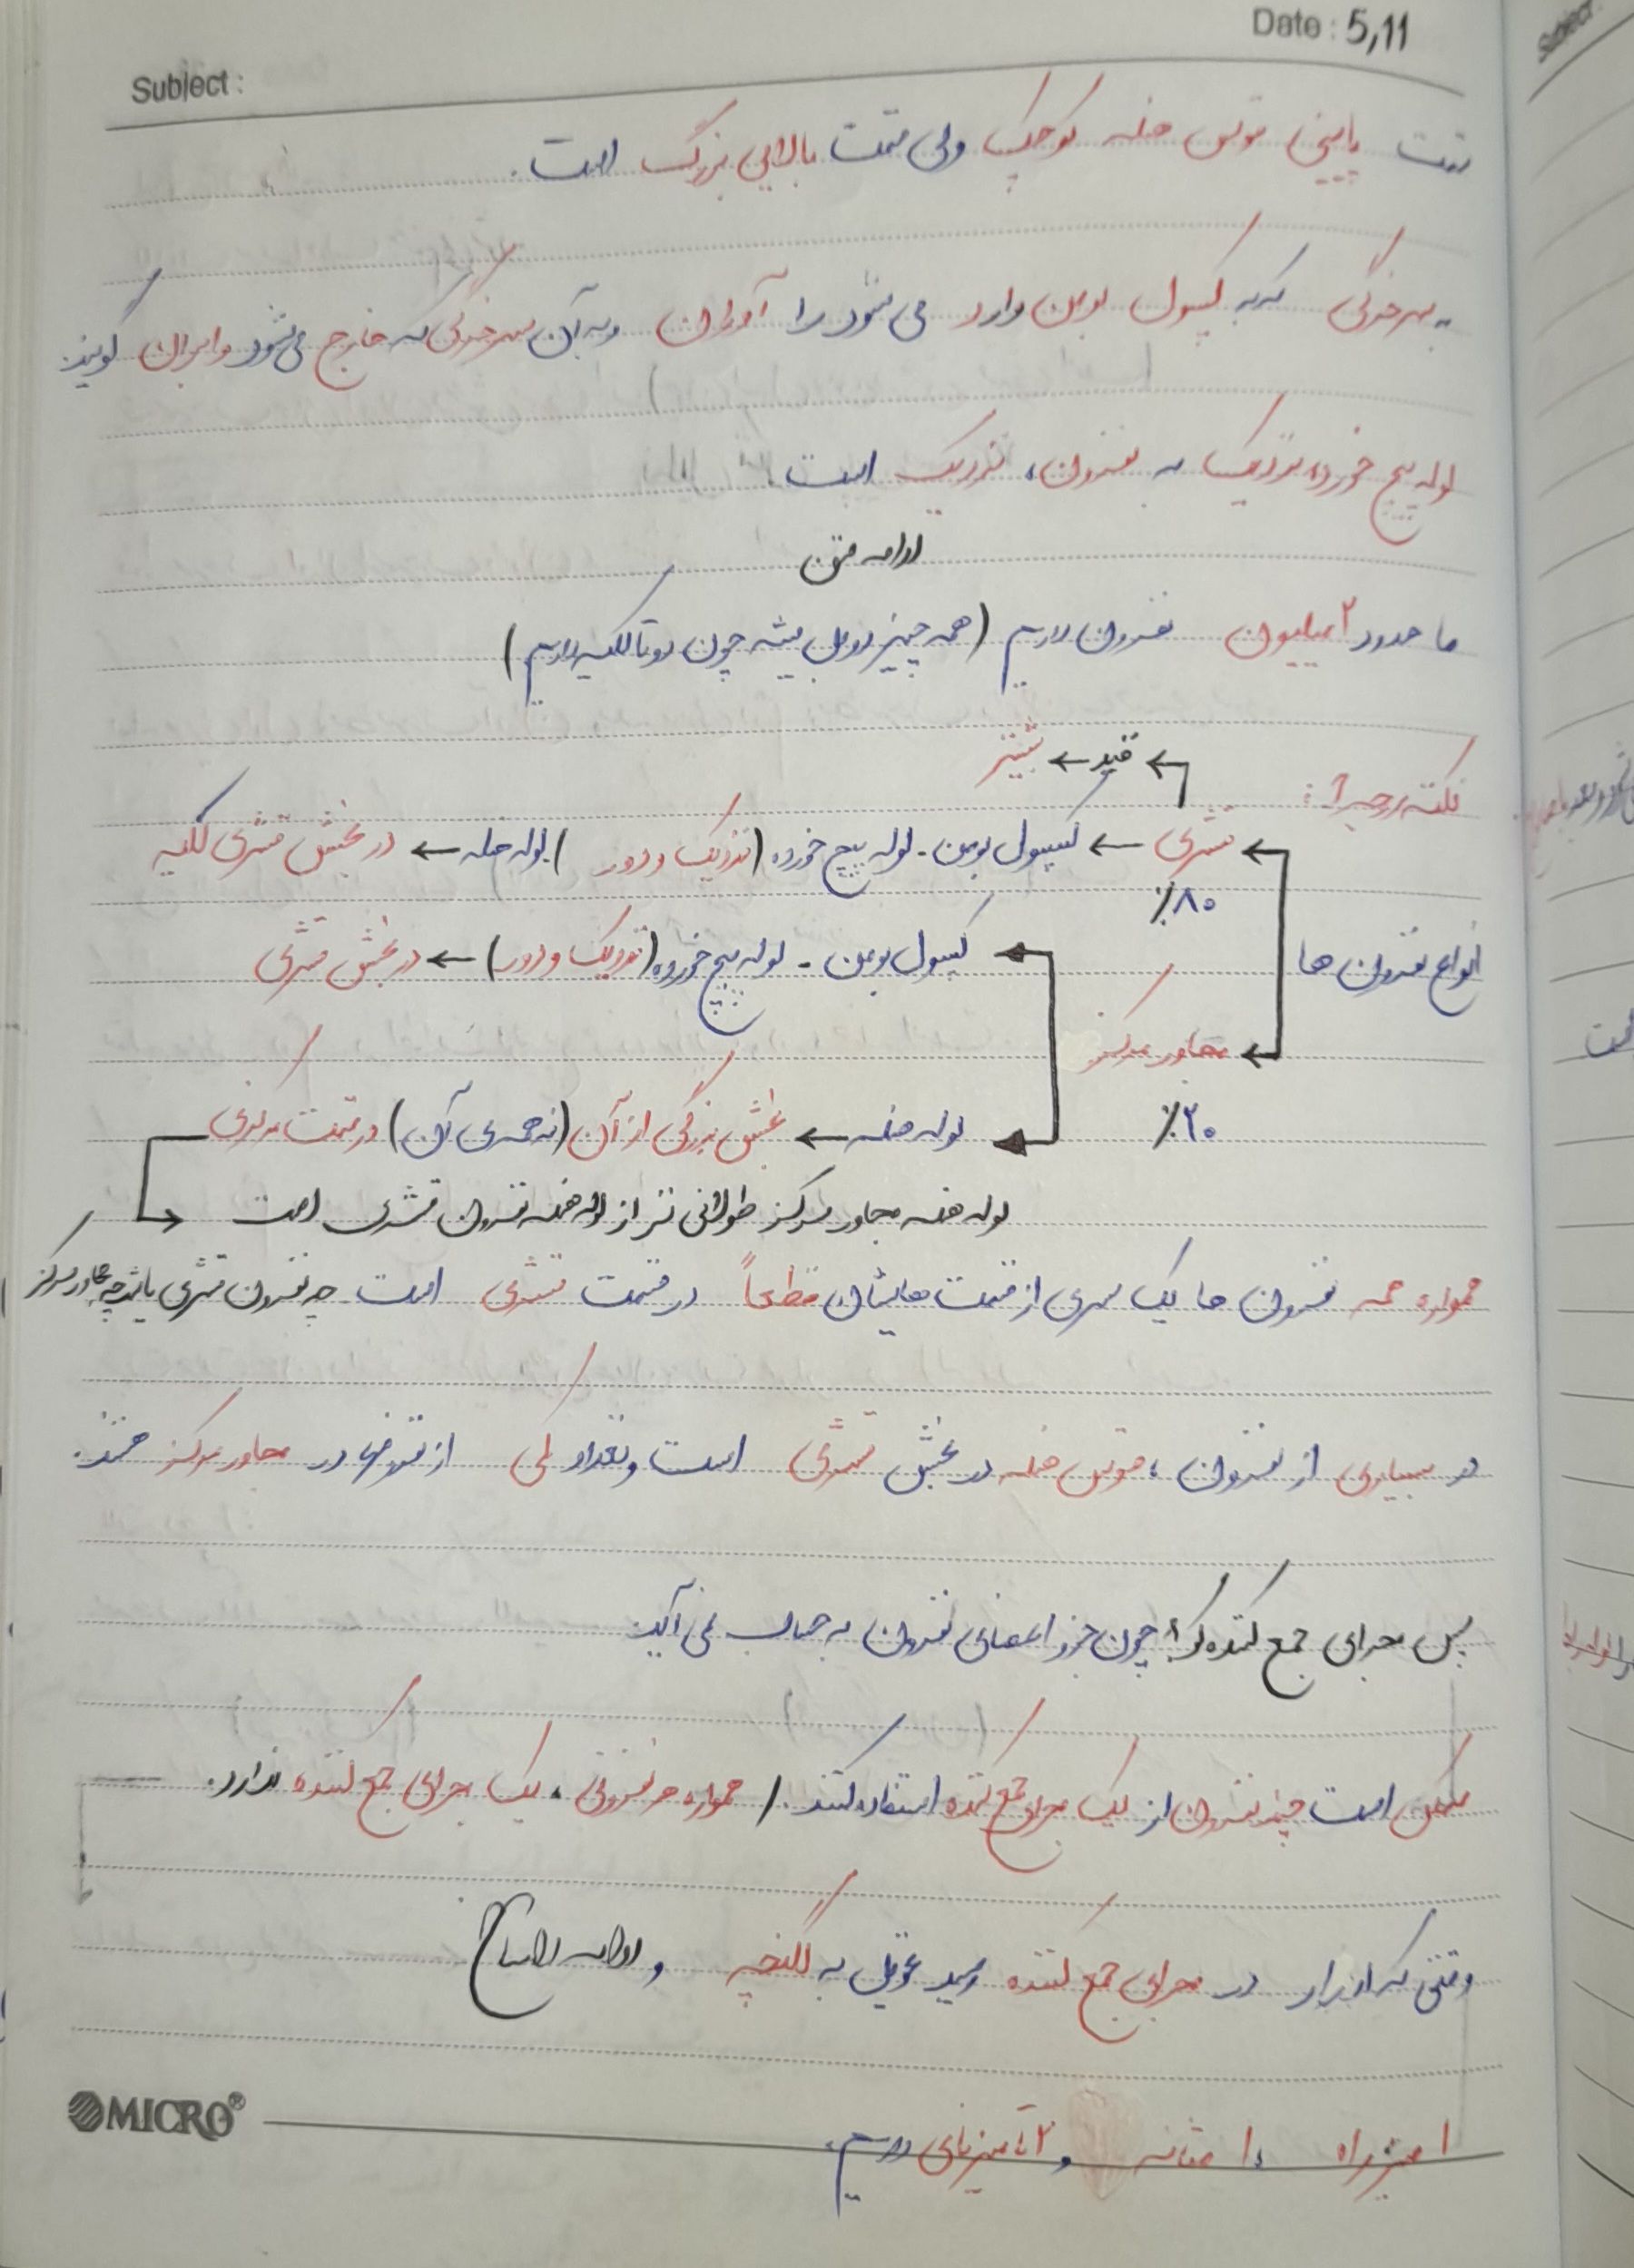 Date : 5,11
Subject :
قسمت پایینی قوس هنله کوچک ولی قسمت بالایی بزرگ است.
به سرخرگی که به کپسول بومن وارد می شود را آوران و به آن سرخرگی که خارج می شود وابران گویند
لوله پیچ خورده نزدیک به نفرون، نزدیک است
ادامه متن
ما حدود ۲ میلیون نفرون داریم (همه چیز دوبل میشه چون دوتا کلیه داریم)
قید ← بیشتر
نکته ترجیح :
قشری ← کپسول بومن - لوله پیچ خورده (نزدیک و دور) لوله هنله ← در بخش قشری کلیه
٪۸۰
کپسول بومن - لوله پیچ خورده (نزدیک و دور) ← در بخش قشری
انواع نفرون ها
مجاور مرکز
لوله هنله ← بخش بزرگی از آن (نه همه ی آن) در قسمت مرکزی
٪۲۰
لوله هنله مجاور مرکز طولانی تر از لوله هنله نفرون قشری است
همواره همه نفرون ها یک سری از قسمت هایشان قطعاً در قسمت قشری است چه نفرون قشری باشد چه مجاور مرکز
در بسیاری از نفرون، قوس هنله در بخش قشری است و تعداد کمی از نفرون ها در مجاور مرکز هستند.
پس مجرای جمع کننده کو؟ چون جزو اعضای نفرون به حساب نمی آید
ممکن است چند نفرون از یک مجرای جمع کننده استفاده کنند. / همواره هر نفرونی، یک مجرای جمع کننده ندارد.
وقتی که ادرار در مجرای جمع کننده رسید تحویل به لگنچه و
۱ میزراه ، ۱ مثانه و ۲ تا میزنای داریم.
MICRO®